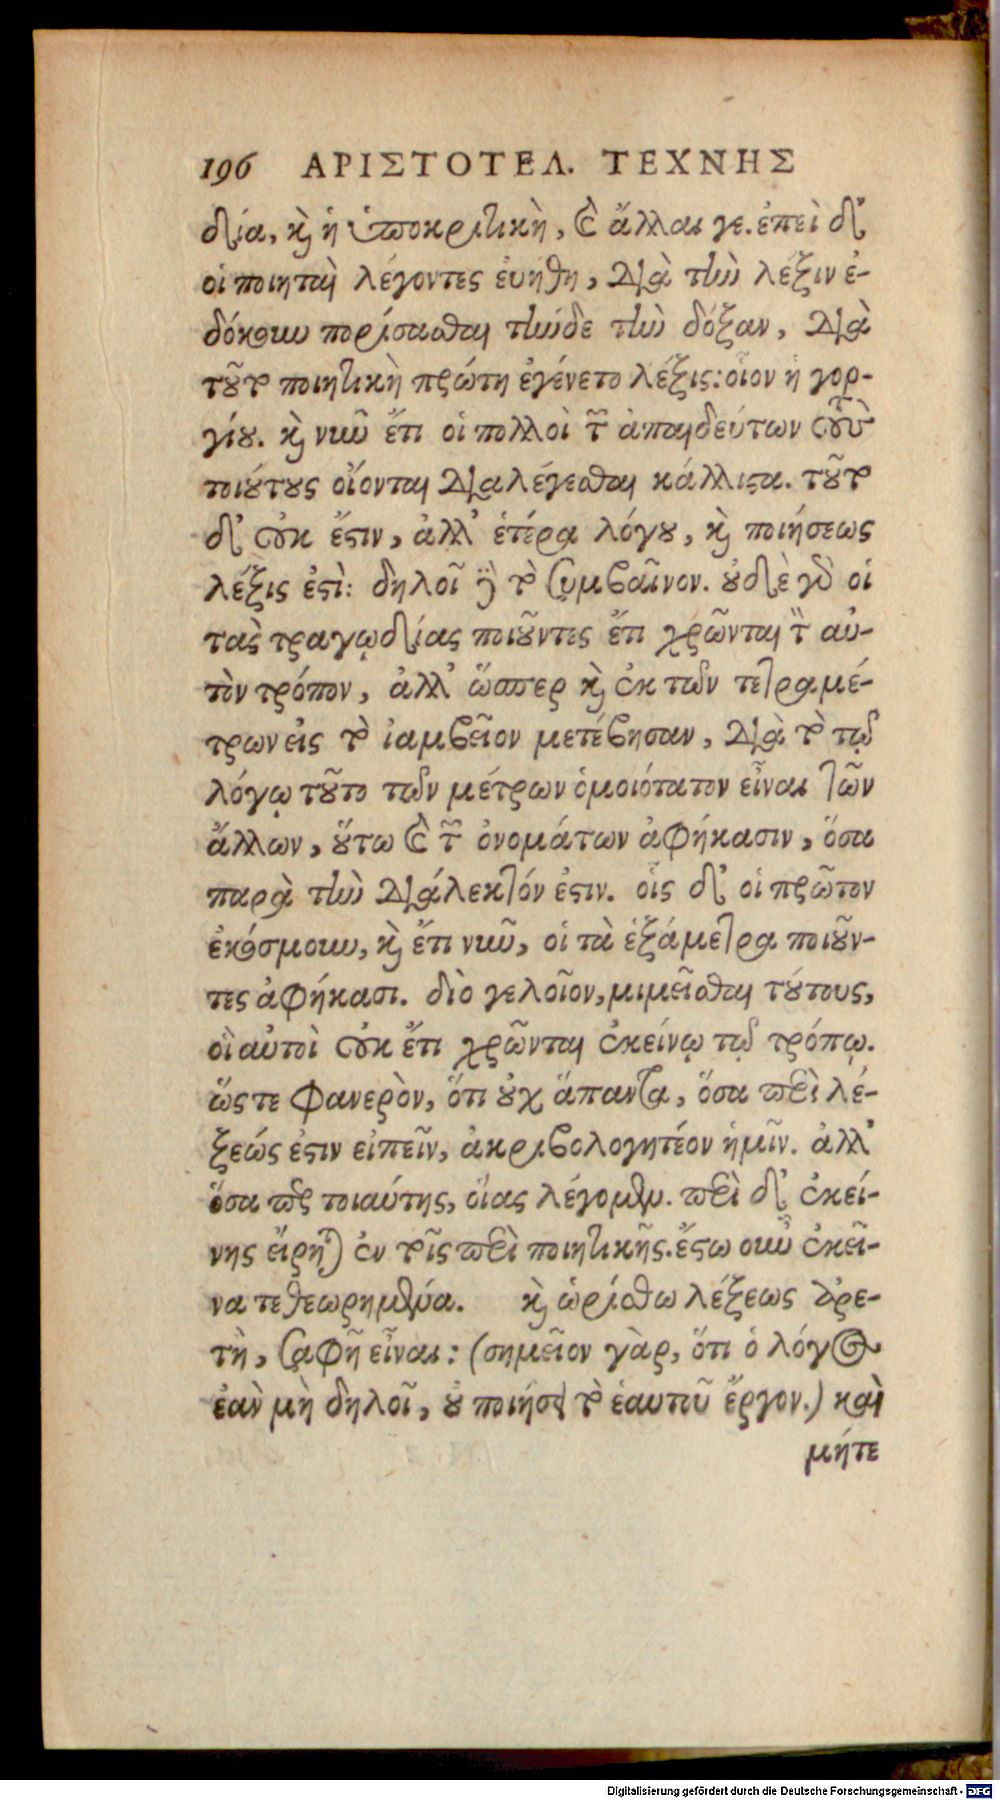 196 ΑΡΙΣΤΟΤΕΛ. ΤΕΧΝΗΣ
δία, καὶ ἡ ὑποκριτικὴ, καὶ ἄλλαι γε. ἐπεὶ δ᾽
οἱ ποιηταὶ λέγοντες ἐυήθη, διὰ τὴν λέξιν ἐ-
δόκουν πορίσασθαι τήνδε τὴν δόξαν, διὰ
τοῦτο ποιητικὴ πρώτη ἐγένετο λέξις: οἷον ἡ γορ-
γίου. καὶ νῦν ἔτι οἱ πολλοὶ τῶν ἀπαιδεύτων τοὺς
τοιούτους οἴονται διαλέγεσθαι κάλλιστα. τοῦτο
δ᾽ οὐκ ἔστιν, ἀλλ᾽ ἑτέρα λόγου, καὶ ποιήσεως
λέξις ἐστὶ: δηλοῖ δὲ τὸ συμβαῖνον. οὐδὲ γὰρ οἱ
τὰς τραγῳδίας ποιοῦντες ἔτι χρῶνται τὸν αὐ-
τὸν τρόπον, ἀλλ᾽ ὥσπερ καὶ ἐκ τῶν τετραμέ-
τρων εἰς τὸ ἰαμβεῖον μετέβησαν, διὰ τὸ τῷ
λόγῳ τοῦτο τῶν μέτρων ὁμοιότατον εἶναι τῶν
ἄλλων, οὕτω καὶ τῶν ὀνομάτων ἀφήκασιν, ὅσα
παρὰ τὴν διάλεκτόν ἐστιν. οἷς δ᾽ οἱ πρῶτον
ἐκόσμουν, καὶ ἔτι νῦν, οἱ τὰ ἑξάμετρα ποιοῦν-
τες ἀφήκασι. διὸ γελοῖον, μιμεῖσθαι τούτους,
οἳ αὐτοὶ οὐκ ἔτι χρῶνται ἐκείνῳ τῷ τρόπῳ.
ὥς τε φανερὸν, ὅτι οὐχ ἅπαντα, ὅσα περὶ λέ-
ξεώς ἐστιν εἰπεῖν, ἀκριβολογητέον ἡμῖν. ἀλλ᾽
ὅσα περὶ τοιαύτης, οἵας λέγομεν. περὶ δ᾽ ἐκεί-
νης εἴρηται ἐν τοῖς περὶ ποιητικῆς. ἔστω οὖν ἐκεῖ-
να τεθεωρημένα. καὶ ὡρίσθω λέξεως ἀρε-
τὴ, σαφῆ εἶναι: (σημεῖον γὰρ, ὅτι ὁ λόγος
ἐὰν μὴ δηλοῖ, οὐ ποιήσει τὸ ἑαυτοῦ ἔργον.) καὶ
μήτε
Digitalisierung gefördert durch die Deutsche Forschungsgemeinschaft - DFG